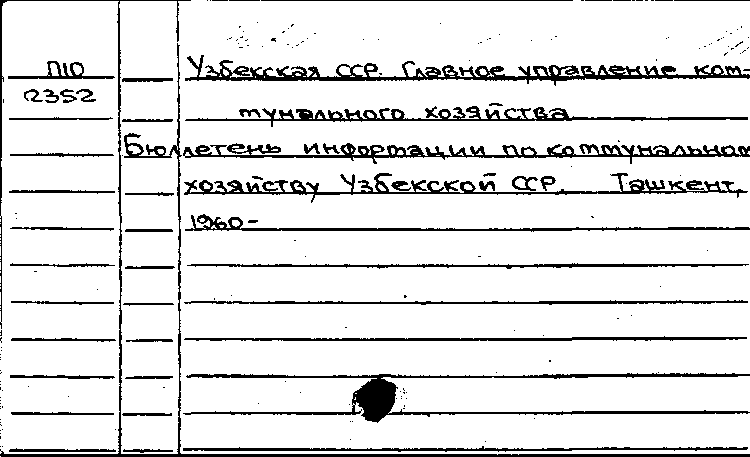 П10 Узбекская ССР. Главное управление ком-
12352
мунального хозяйства
Бюллетень информации по коммунальном
хозяйству Узбекской ССР. Ташкент,
1960-